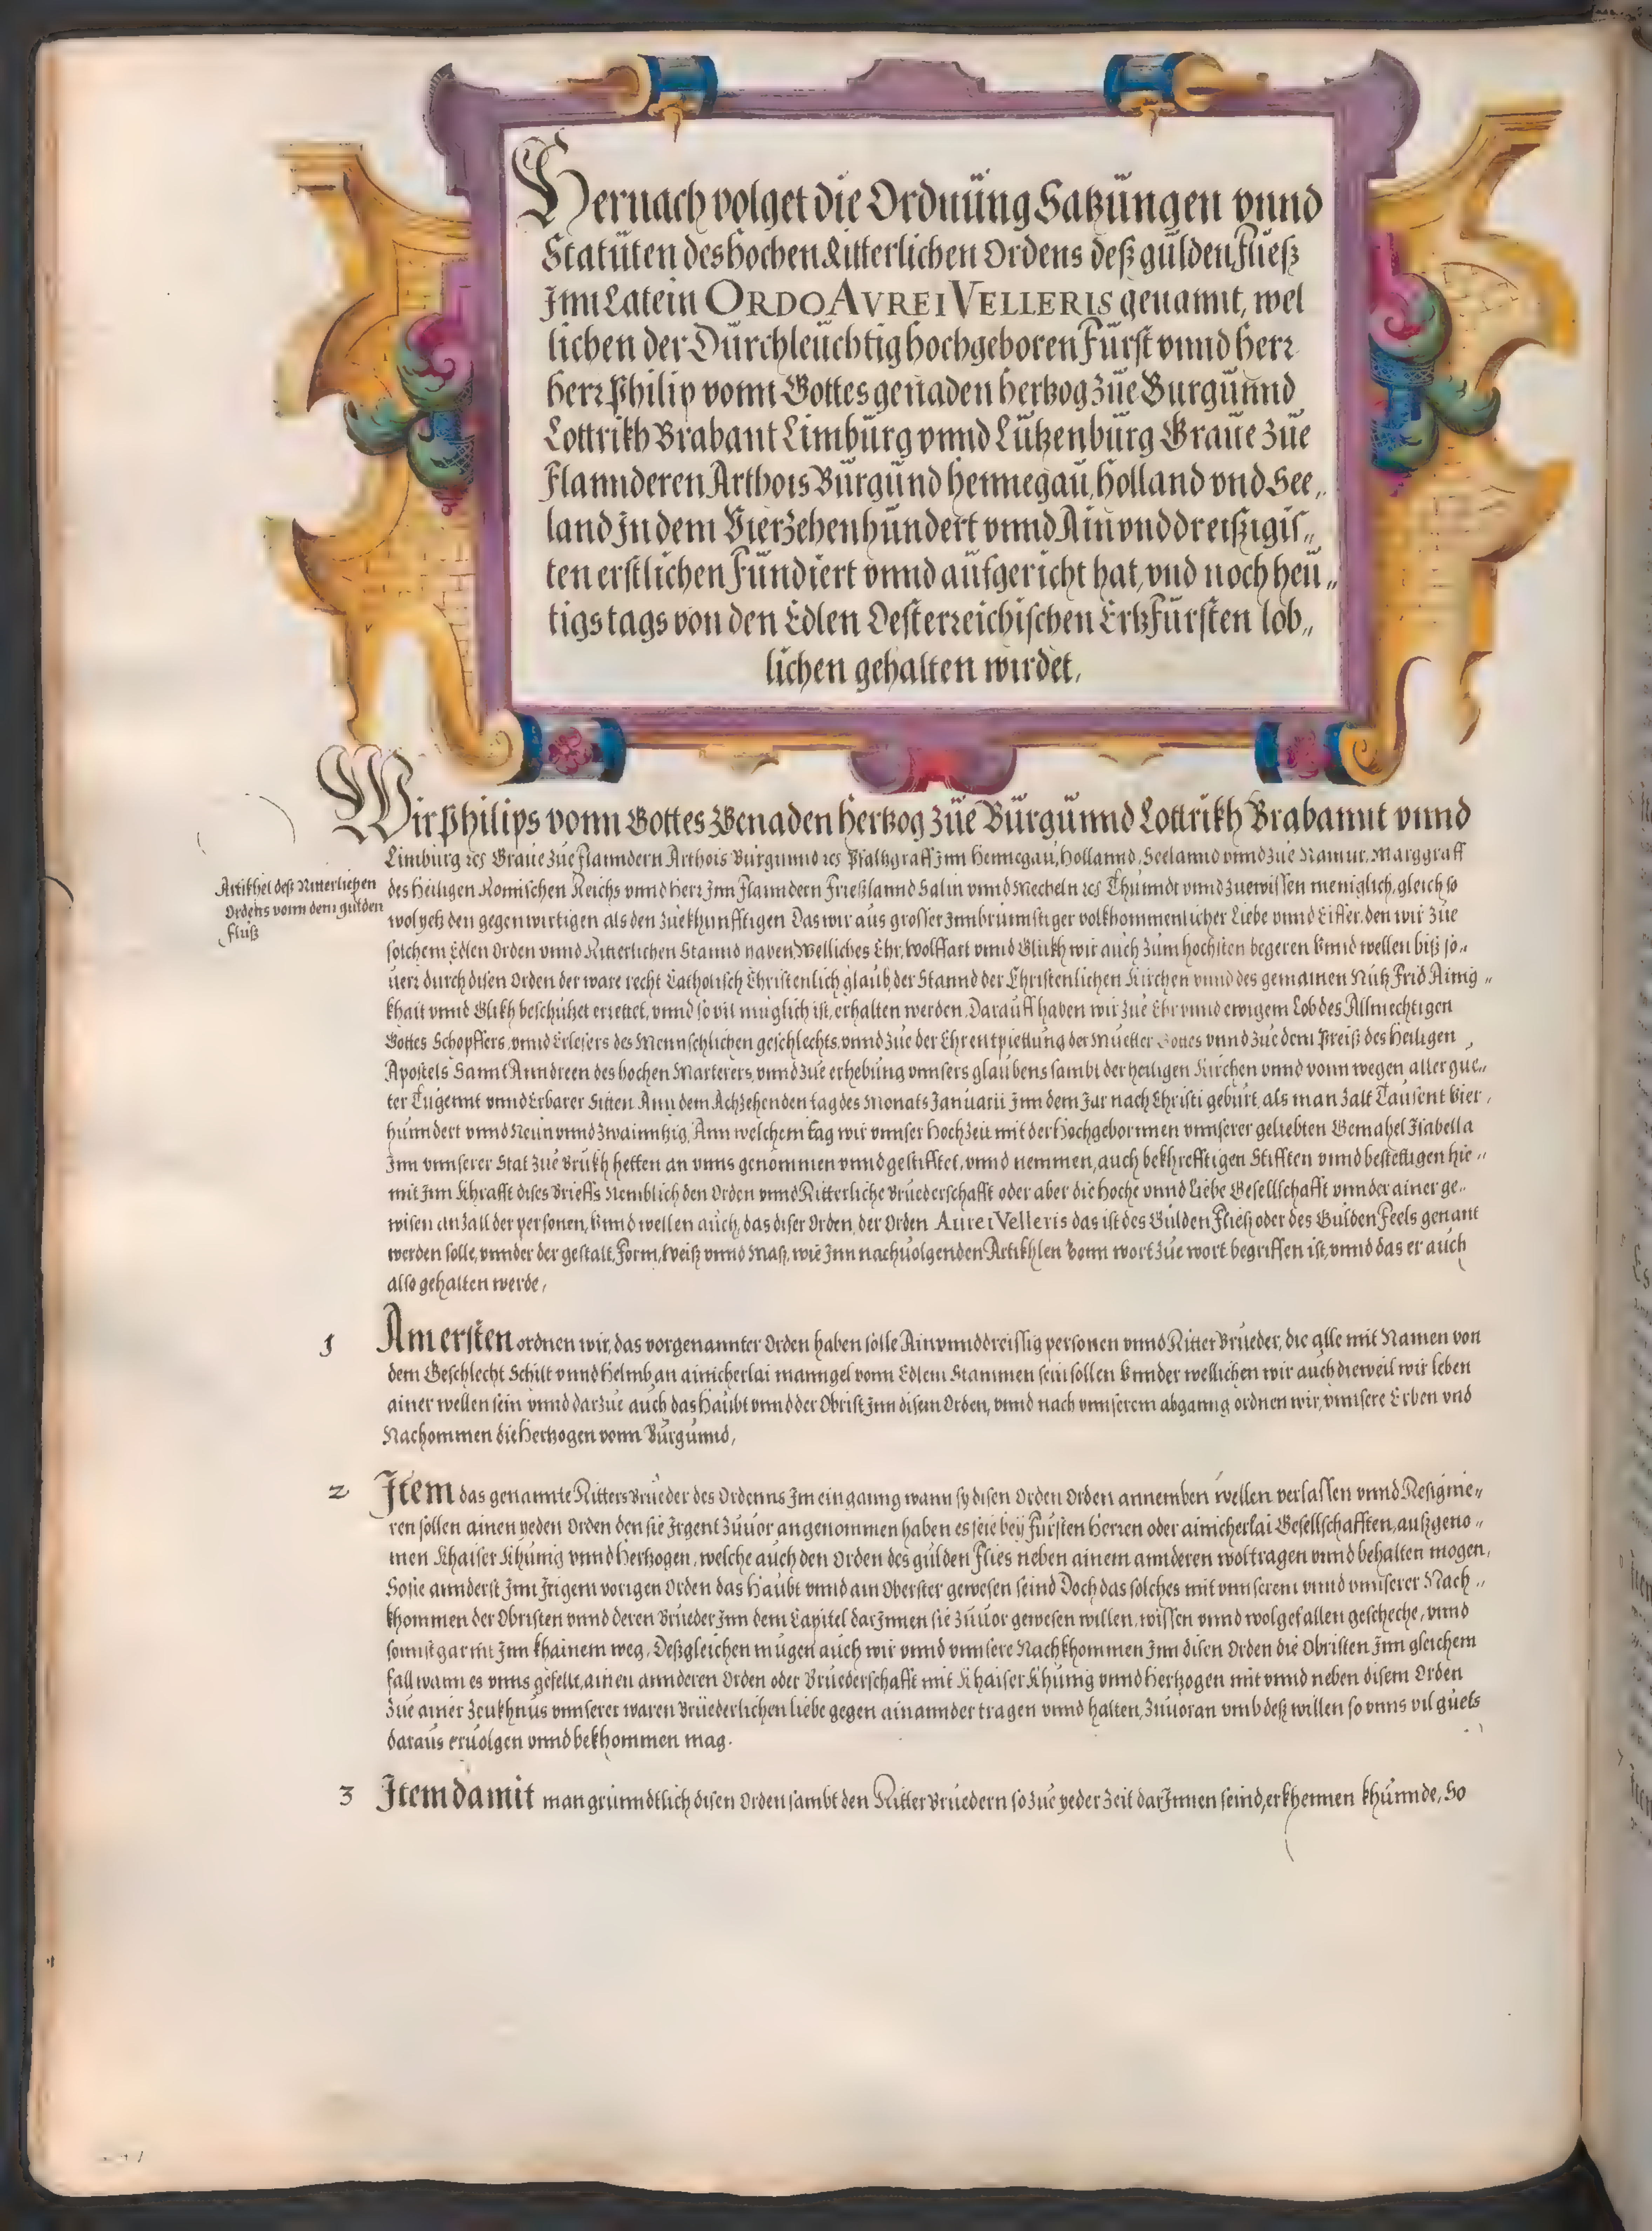 Hernach volget die Ordnüng Satzüngen vnnd
Statüten des hochen Ritterlichen Ordens deß gülden Flüeß
Jnn Latein ORDO AVREI VELLERIS genannt, wel
lichen der Dürchleüchtig hochgeboren Fürst vnnd herr
herr Philip vonn Gottes genaden hertzog züe Burgünnd
Lottrikh Brabant Limbürg vnnd Lützenbürg Graue züe
Flannderen Arthois Bürgünd hennegaü, holland vnd See„
land Jn dem Vierzehenhündert vnnd Ain vnd dreißigis„
ten erstlichen Fündiert vnnd aüfgericht hat, vnd noch heü„
tigs tags von den Edlen Oesterreichischen Ertzfürsten lob„
lichen gehalten wirdet,
Wir Philips vonn Gottes Genaden hertzog züe Bürgünnd Lottrikh Brabannt vnnd
Limburg ꝛcs Graue züe Flanndern Arthois Burgunnd ꝛcs Pfaltzgraff Jnn Hennegaü, Hollannd, Seelannd vnnd züe Namur, Marggraff
Artikhel deß Ritterlichen
Ordens vonn dem gulden
Flüß
des heiligen Romischen Reichs vnnd herr Jnn Flanndern Frießlannd Salin vnnd Mecheln ꝛcs Thünndt vnnd züewissen meniglich, gleich so
wol yetz den gegenwirtigen als den züekhunfftigen Das wir aus grosser Jnnbrünnstiger volkhommenlicher Liebe vnnd Eiffer, den wir züe
solchem Edlen Orden vnnd Ritterlichen Stannd haben, Welliches Ehr, Wolffart vnnd Glükh wir auch züm hochsten begeren Vnnd wellen biß so„
uerr durch disen Orden der ware recht Catholisch Christenlich glaub, der Stannd der Christenlichen Kirchen vnnd des gemainen Nütz Frid Ainig„
khait vnnd Glikh beschützet errettet, vnnd so vil müglich ist, erhalten werden, Darauff haben wir züe Ehr vnnd ewigem Lob des Allmechtigen
Gottes Schopffers, vnnd Erlesers des Mennschlichen geschlechts, vnnd züe der Ehrentpiettüng der Müetter Gottes vnnd züe dem Preiß des heiligen
Apostels Sannt Anndreen des hochen Marterers, vnnd züe erhebüng vnnsers glaubens sambt der heiligen Kirchen vnnd vonn wegen aller gue„
ter Tügennt vnnd Erbarer Sitten Ann dem Achzehenden tag des Monats Januarii Jnn dem Jar nach Christi gebürt, als man zalt Taüsent Vier,
hünndert vnnd Neün vnnd zwainntzig, Ann welchem tag wir vnnser Hochzeit mit der Hochgebornnen vnnserer geliebten Gemahel Jsabella
Jnn vnnserer Stat züe Brükh hetten an vnns genommen vnnd gestifftet, vnnd nemmen, auch bekhrefftigen Stifften vnnd bestettigen hie„
mit Jnn Khrafft dises Brieffs Nemblich den Orden vnnd Ritterliche Brüederschafft oder aber die hoche vnnd Liebe Gesellschafft vnnder ainer ge„
wisen anzall der personen, Vnnd wellen aüch, das diser Orden, der Orden Aurei Velleris das ist des Gülden Fließ oder des Gulden Feels genant
werden solle, vnnder der gestalt, Form, Weiß vnnd Maß, wie Jnn nachuolgenden Artikhlen Vonn wort züe wort begriffen ist, vnnd das er aüch
also gehalten werde,
1 Am ersten ordnen wir, das vorgenannter Orden haben solle Ain vnnd dreissig personen vnnd Ritter Brüeder, die alle mit Namen von
dem Geschlecht Schilt vnnd Helmb, an ainicherlai manngel vonn Edlem Stammen sein sollen Vnnder wellichen wir auch dieweil wir leben
ainer wellen sein vnnd darzüe auch das Haübt vnnd der Obrist Jnn disem Orden, vnnd nach vnnserem abganng ordnen wir, vnnsere Erben vnd
Nachommen die Hertzogen vonn Bürgünnd,
2 Jtem das genannte Ritters Brüeder des Ordenns Jm einganng wann sy disen Orden Orden annemben wellen verlassen vnnd Resignie„
ren sollen ainen yeden Orden den sie Jrgent züuor angenommen haben es seie bey Fürsten Herren oder ainicherlai Gesellschafften, außgeno„
men Khaiser Khünig vnnd Hertzogen, welche auch den Orden des gülden Flies neben ainem annderen wol tragen vnnd behalten mogen,
So sie annderst Jnn Jrigem vorigen Orden das Haübt vnnd ain Oberster gewesen seind Doch das solches mit vnnserem vnnd vnnserer Nach„
khommen der Obristen vnnd deren Brüeder Jnn dem Capitel darJnnen sie züuor gewesen willen, wissen vnnd wolgefallen gescheche, vnnd
sonnst gar nit Jnn khainem weg, Deßgleichen mügen auch wir vnnd vnnsere Nachkhommen Jnn disen Orden die Obristen Jnn gleichem
fall wann es vnns gefellt, ainen annderen Orden oder Brüederschafft mit Khaiser Khünig vnnd Hertzogen mit vnnd neben disem Orden
züe ainer Zeükhnüs vnnserer waren Brüederlichen liebe gegen ainannder tragen vnnd halten, Züuoran vmb deß willen so vnns vil güets
daraüs eruolgen vnnd bekhommen mag.
3 Jtem damit man grünndtlich disen Orden sambt den Ritter Brüedern so züe yeder zeit darJnnen seind, erkhennen khünnde, So